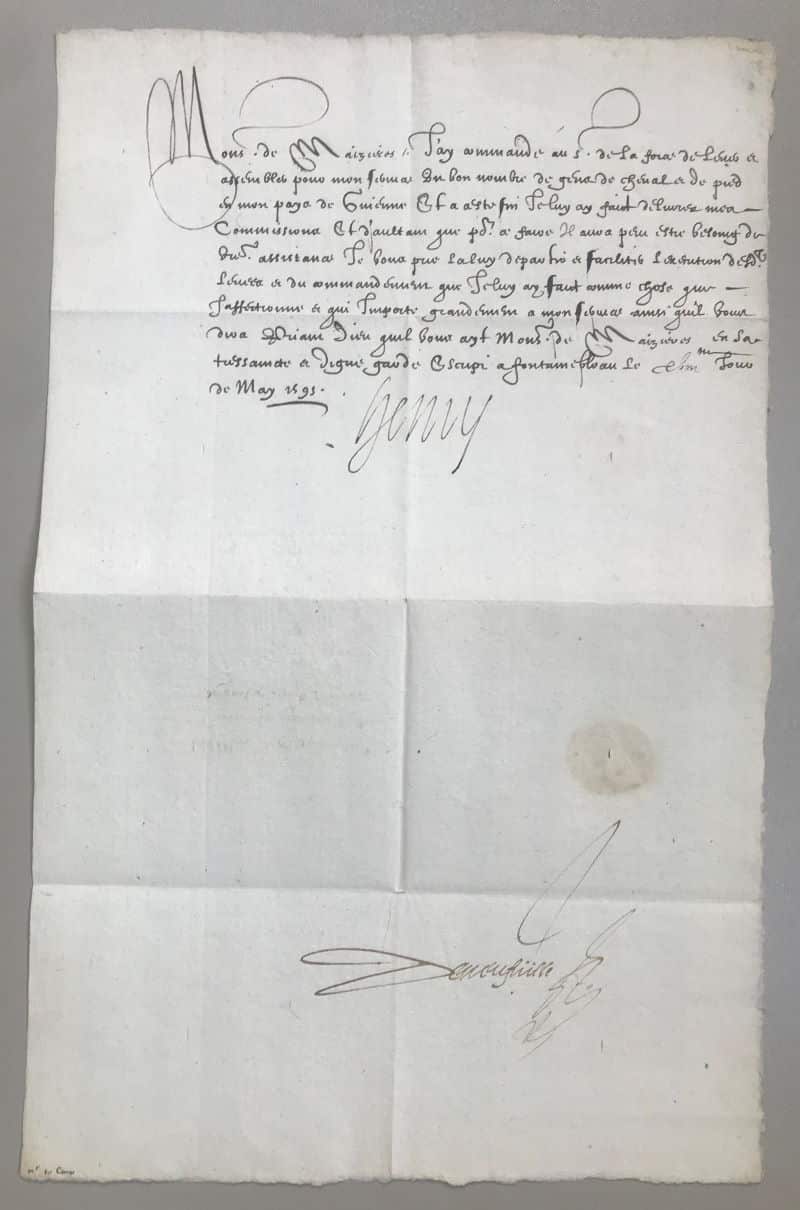 Mons.r de Maizieres, J'ay commandé au s.r de la force de lever et
assembler pour mon service un bon nombre de gens de cheval et de pied
en mon pays de Guienne Et a ceste fin Je luy ay faict delivrer mes
Commissions Et d'aultant que p.r ce faire Il aura peu estre besoing de
v're assistance Je vous prie la luy departir et faciliter l'execution desd.
levees et du commandement que Je luy ay faict comme chose que
J'affectionne et qui Importe grandement a mon service ainsi quil vous
dira Priant Dieu quil vous ayt Mons.r de Maizieres en sa
tressaincte et digne garde Escript a fontainebleau le Jour
de May 1591.
Henry
Deneufville